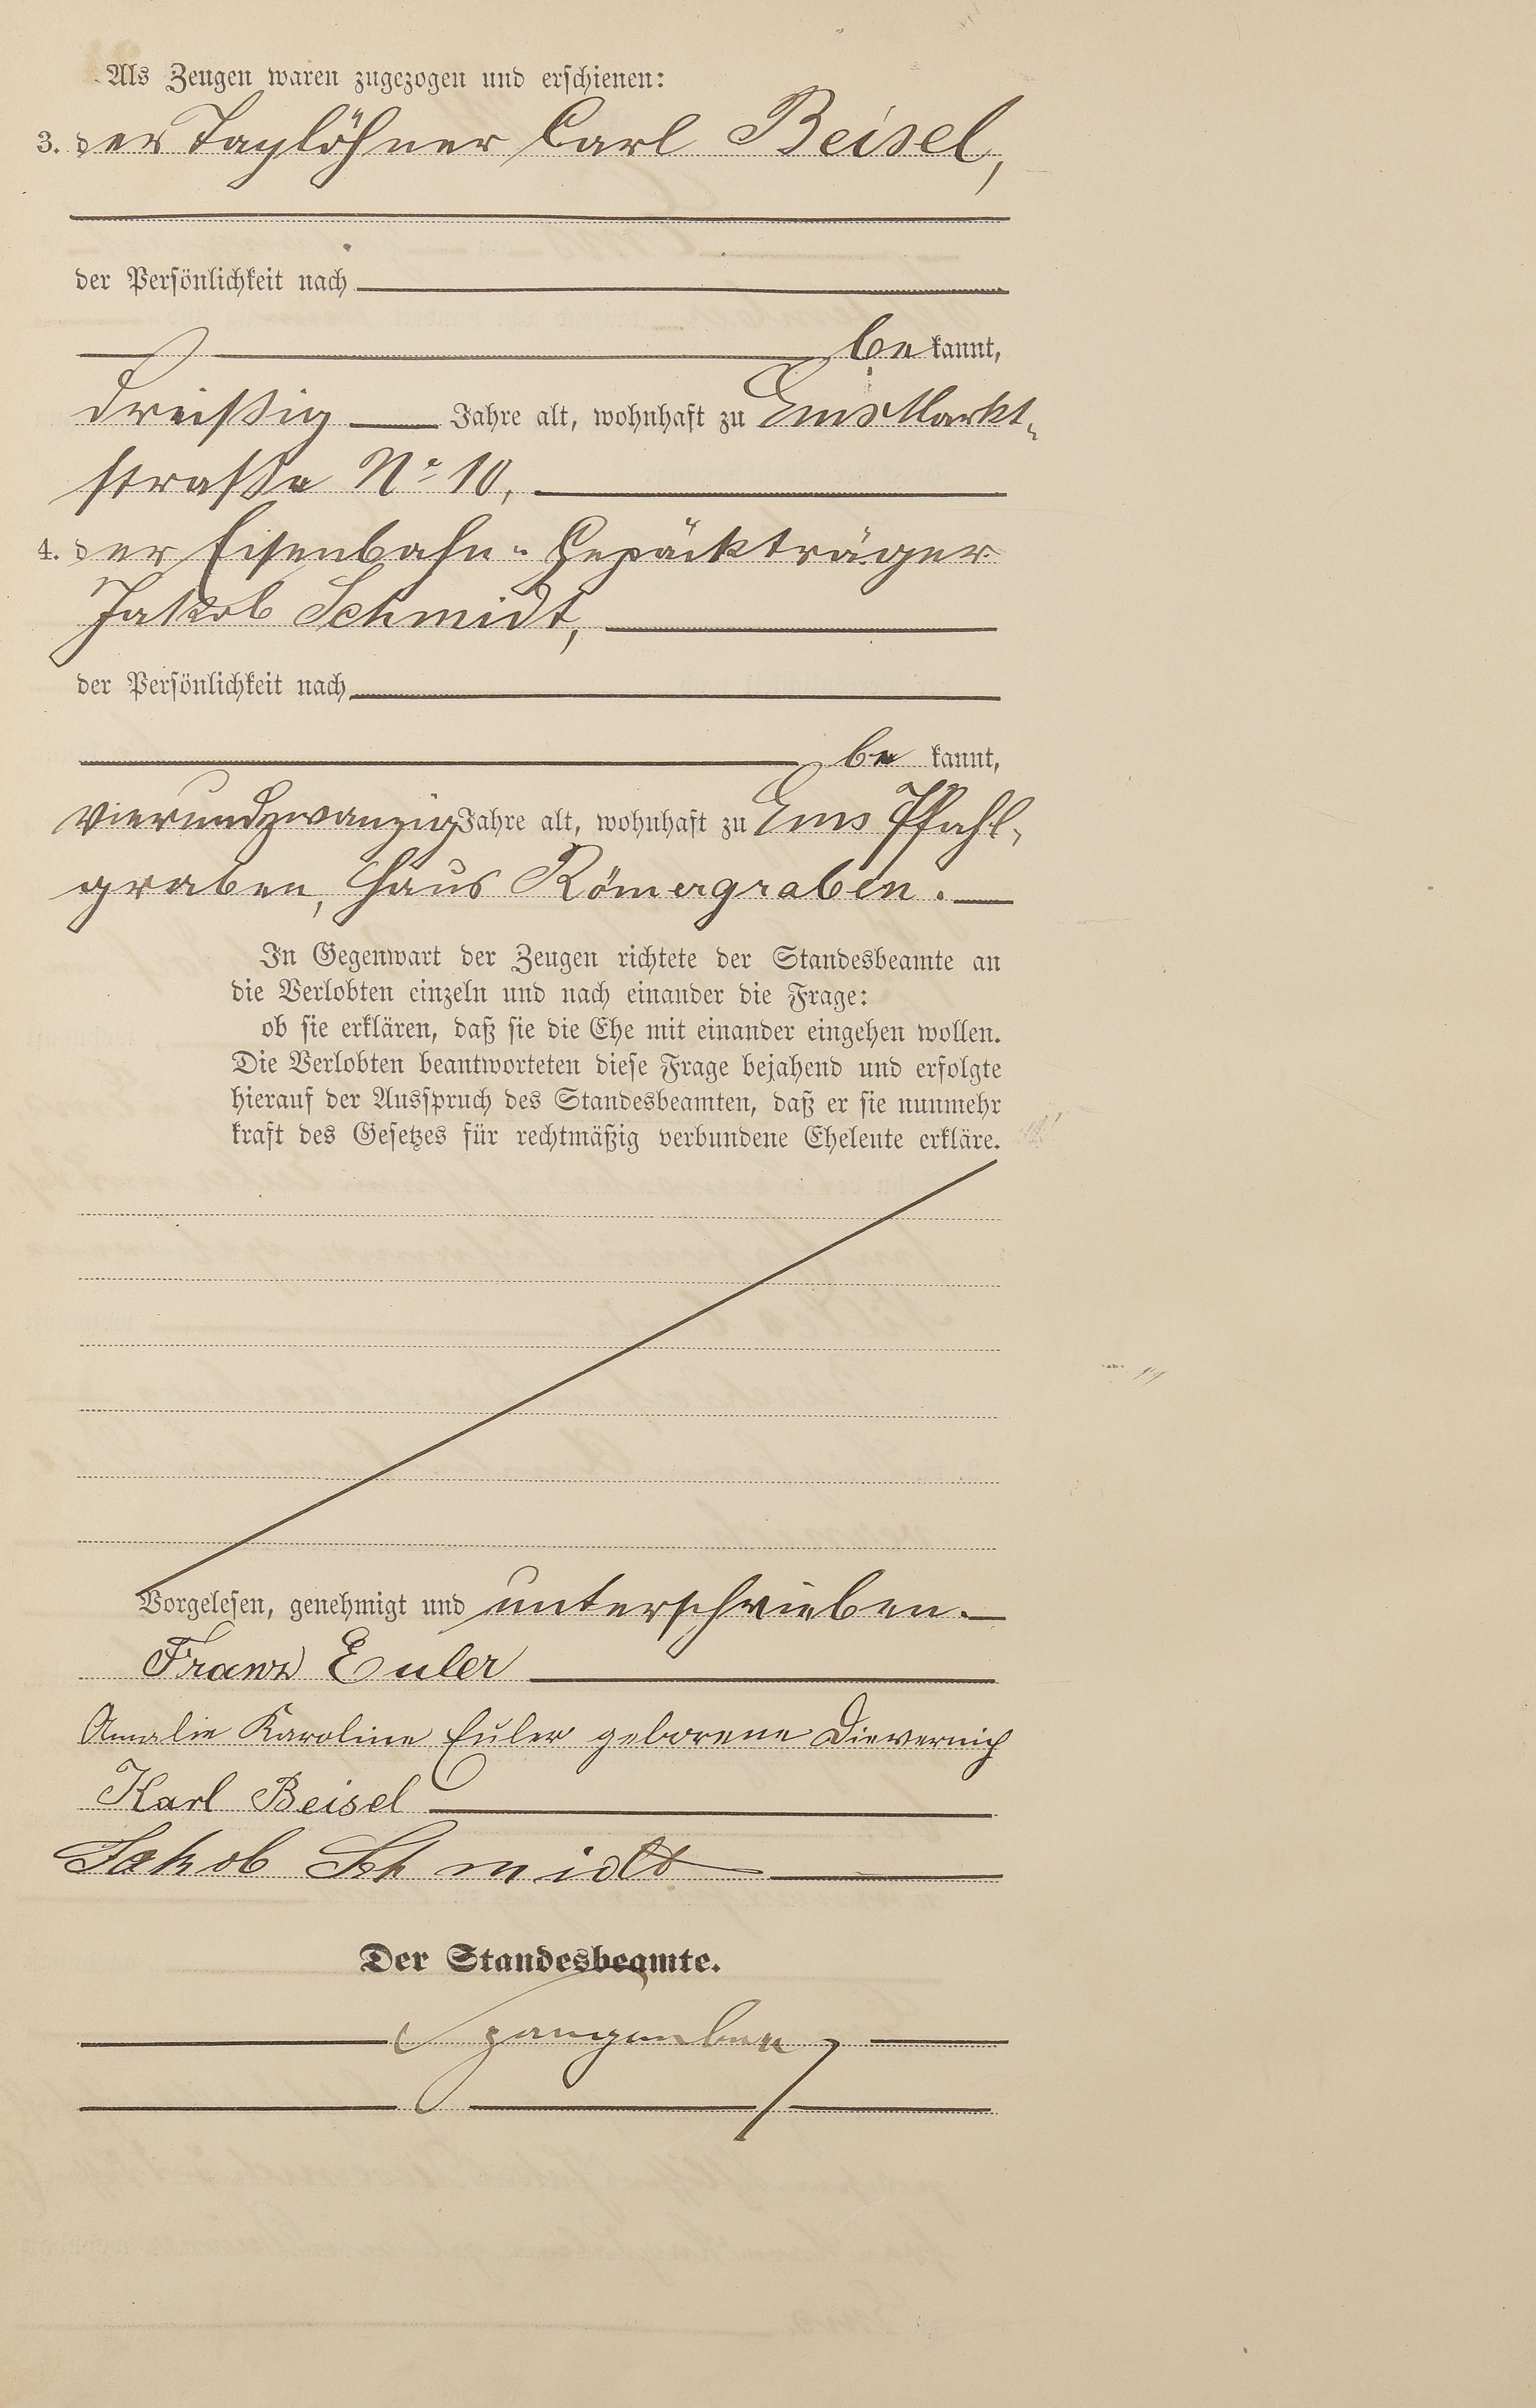 Als Zeugen waren zugezogen und erschienen:
3. der Taglöhner Carl Beisel,
der Persönlichkeit nach
be kannt,
dreißig Jahre alt, wohnhaft zu Ems Markt-
straße No 10,
4. der Eisenbahn-Gepäckträger
Jakob Schmidt,
der Persönlichkeit nach
be kannt,
vierundzwanzig Jahre alt, wohnhaft zu Ems Pfahl-
graben, Haus Römergraben.
In Gegenwart der Zeugen richtete der Standesbeamte an
die Verlobten einzeln und nach einander die Frage:
ob sie erklären, daß sie die Ehe mit einander eingehen wollen.
Die Verlobten beantworteten diese Frage bejahend und erfolgte
hierauf der Ausspruch des Standesbeamten, daß er sie nunmehr
kraft des Gesetzes für rechtmäßig verbundene Eheleute erkläre.
Vorgelesen, genehmigt und unterschrieben.
Franz Euler
Amalie Karoline Euler geborene Dievernich
Karl Beisel
Jakob Schmidt
Der Standesbeamte.